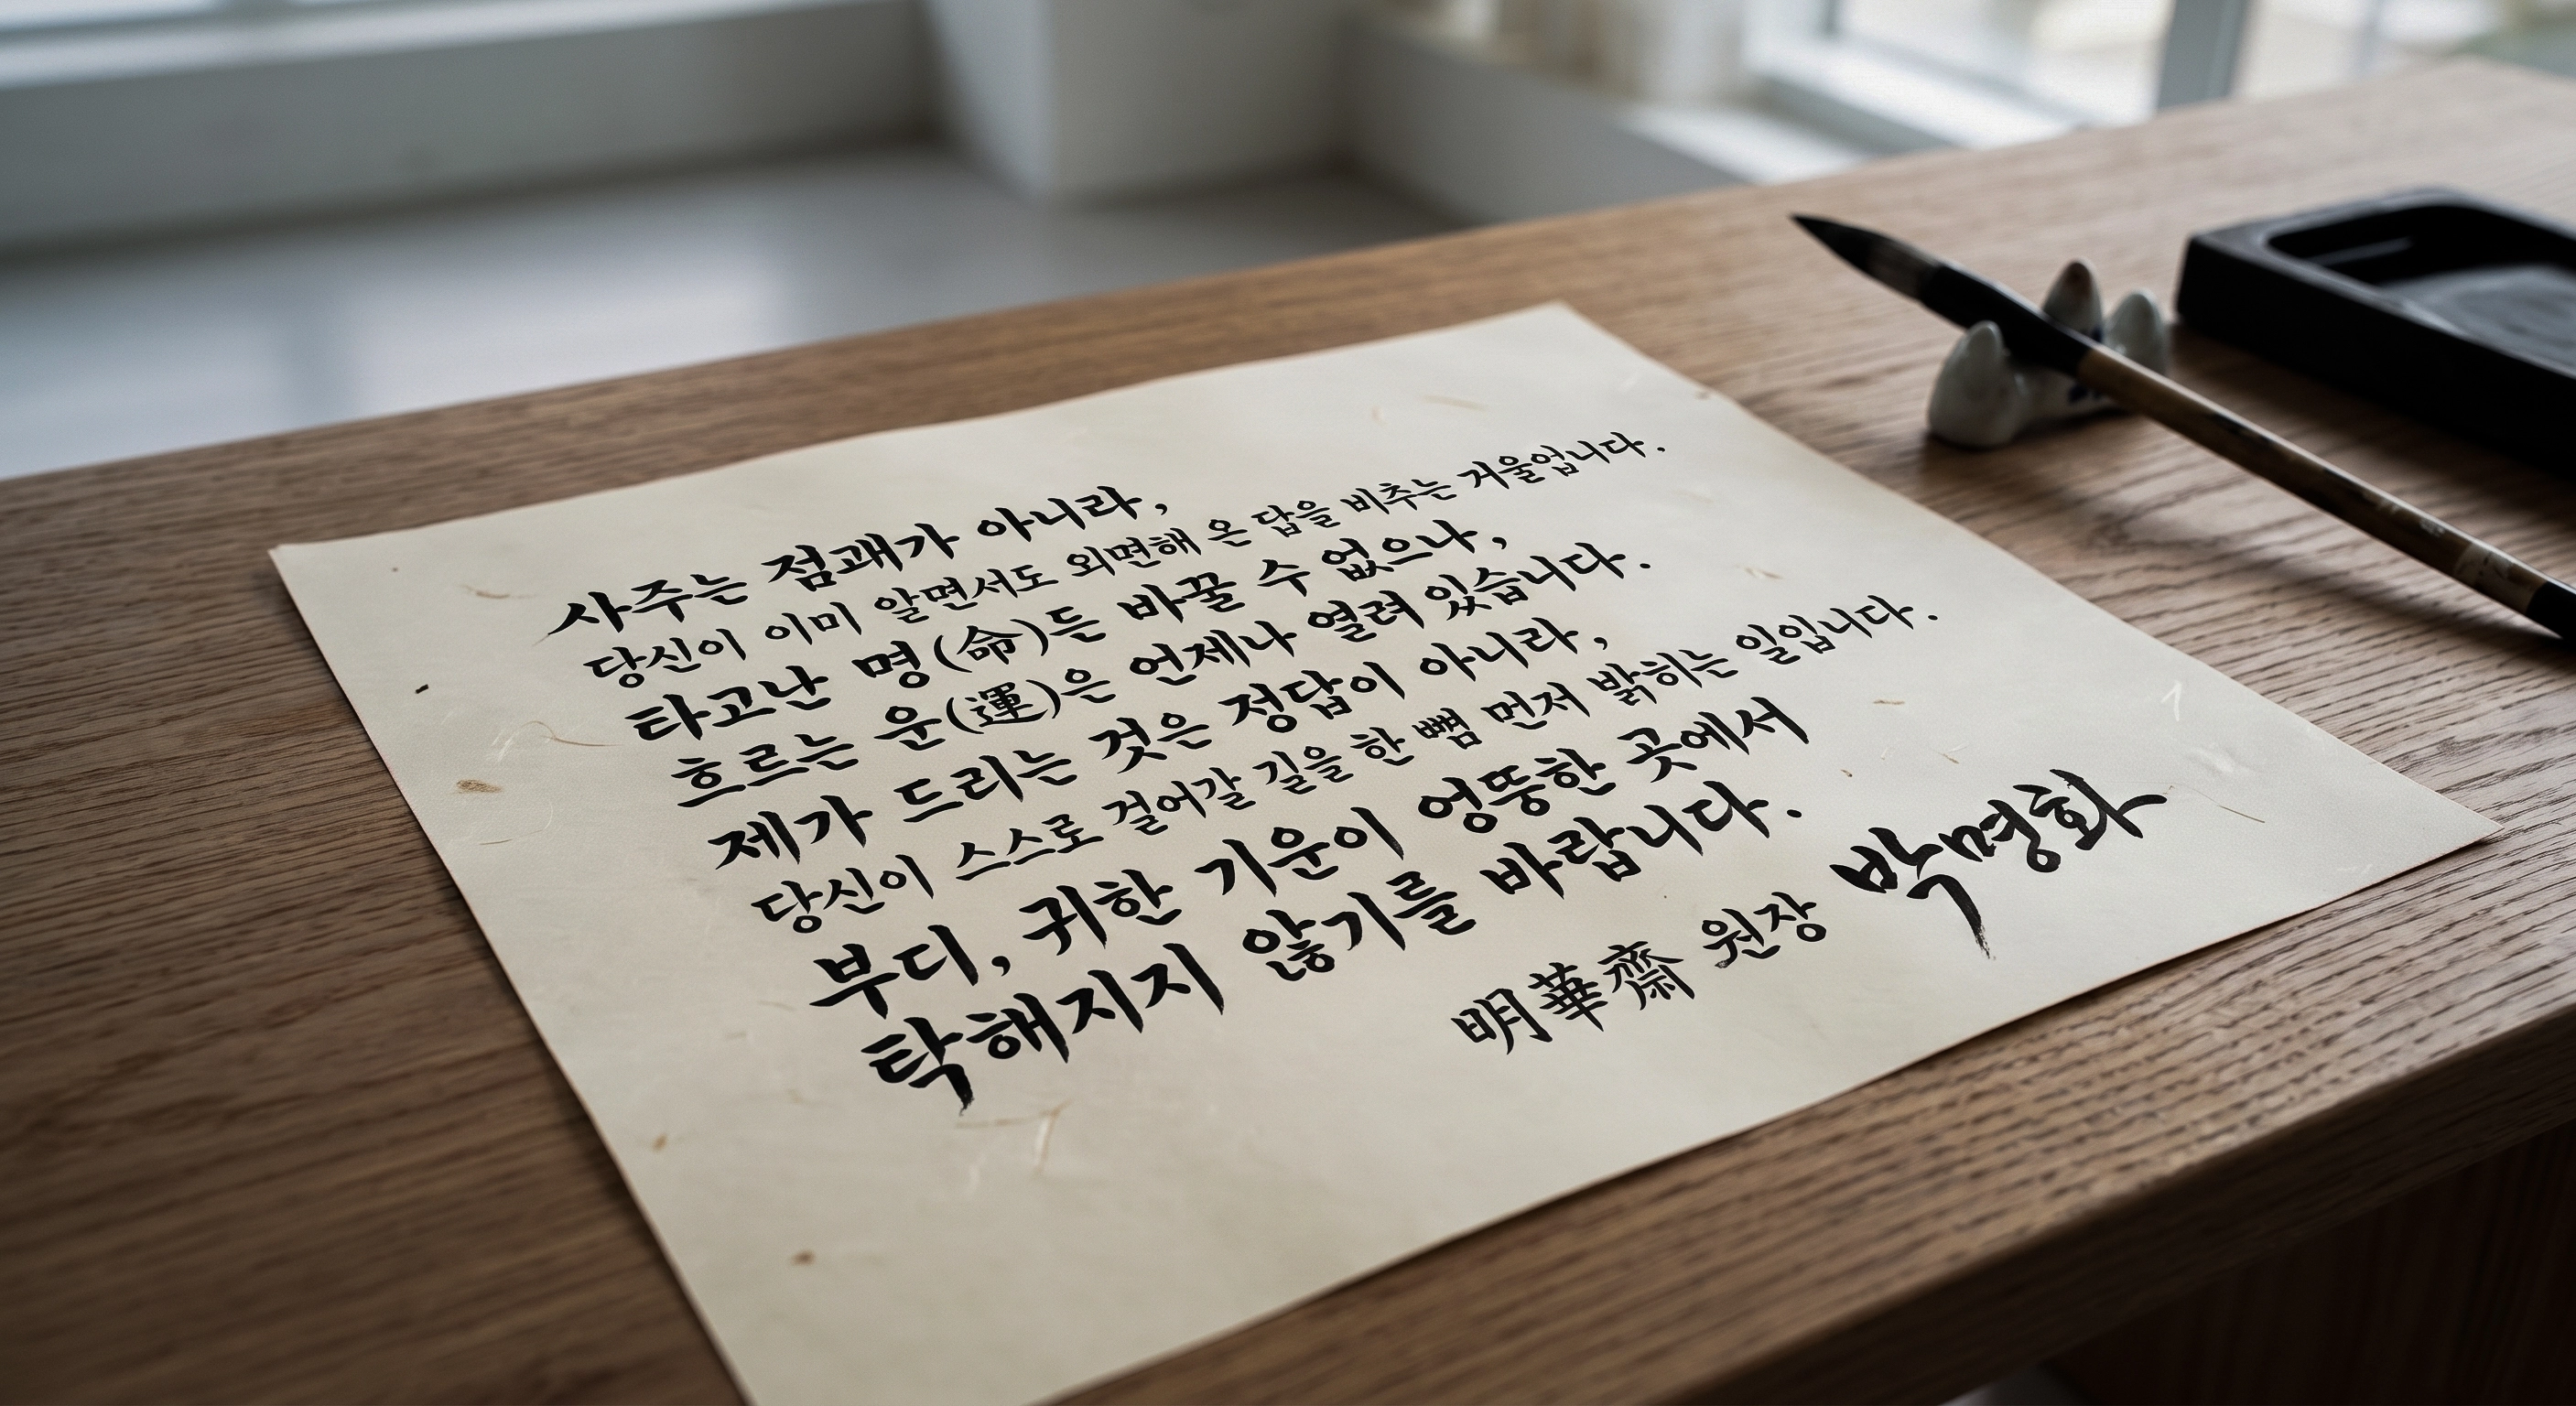 사주는 점괘가 아니라,
당신이 이미 알면서도 외면해 온 답을 비추는 거울입니다.
타고난 명(命)든 바꿀 수 없으나,
흐르는 운(運)은 언제나 열려 있습니다.
제가 드리는 것은 정답이 아니라,
당신이 스스로 걸어갈 길을 한 뼘 먼저 밝히는 일입니다.
부디, 귀한 기운이 엉뚱한 곳에서
탁해지지 않기를 바랍니다.
明華齋 원장 박명화